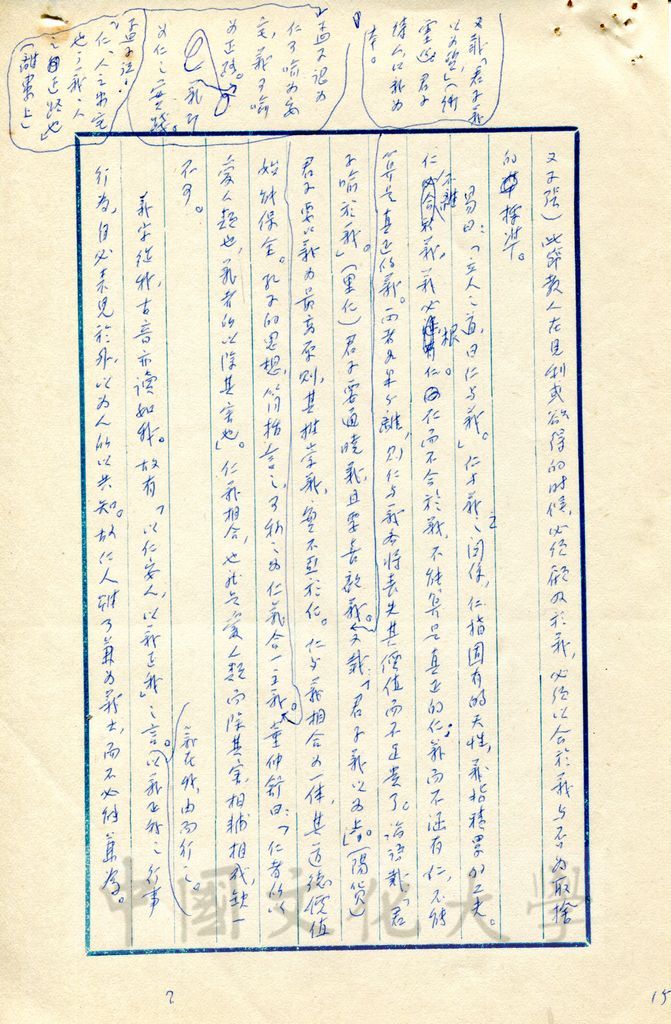 又子張）此節教人在見利或欲得的時候，必須顧及於義，必須以合於義與否為取捨
的標準。
易曰：「立人之道，曰仁與義。」仁與義之關係，仁指固有的天性，義指積累的工夫。
仁不離義，義必根仁。仁而不合於義，不能算是真正的仁；義而不涵有仁，不能
算是真正的義。兩者如果分離，則仁與義亦將喪失其價值而不足貴了。論語載「君
子喻於義」（里仁）君子要通曉義，且要喜歡義。又載：「君子義以為上。」（陽貨）
君子要以義為最高原則，其推崇義，實不亞於仁。仁與義相合為一體，其道德價值
始能保全。孔子的思想，簡括言之，可稱之為仁義合一主義。董仲舒曰：「仁者所以
愛人類也，義者所以除其害也」。仁義相合，也就是愛人類而除其害，相輔相成，缺一
不可。
義在我，由而行之。
義字從我，古音亦讀如我。故有「以仁安人，以義正我」之言。以義正我之行事
行為，自必表見於外，以為人所以共知。故仁人雖可兼為義士，而不必能兼為。
又載「君子義
以為質」（衛
靈公）君子
持人以義為
本。
孟子認為
仁可喻為安
宅，義可喻
為正路。
義即
為仁之實踐。
孟子說：
「仁，人之安宅
也；義，人
之正路也」
（離婁上）
中國文化大學
7
15